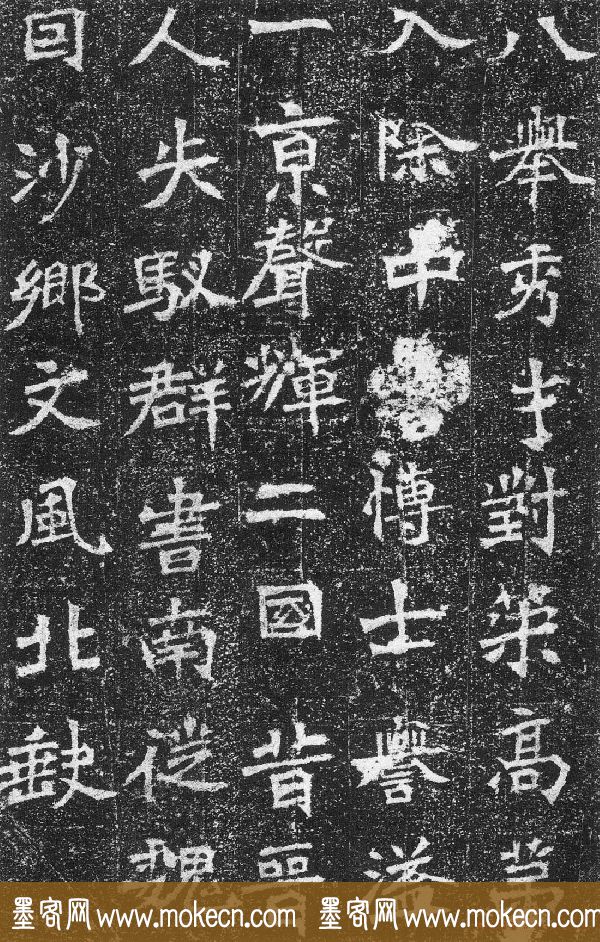 八舉秀才對策高第
入除中書博士譽洛
一京聲輝二國昔晉
人失馭群書南從魏
因沙鄉文風北缺
墨客网 www.mokecn.com 墨客网 www.mokecn.com